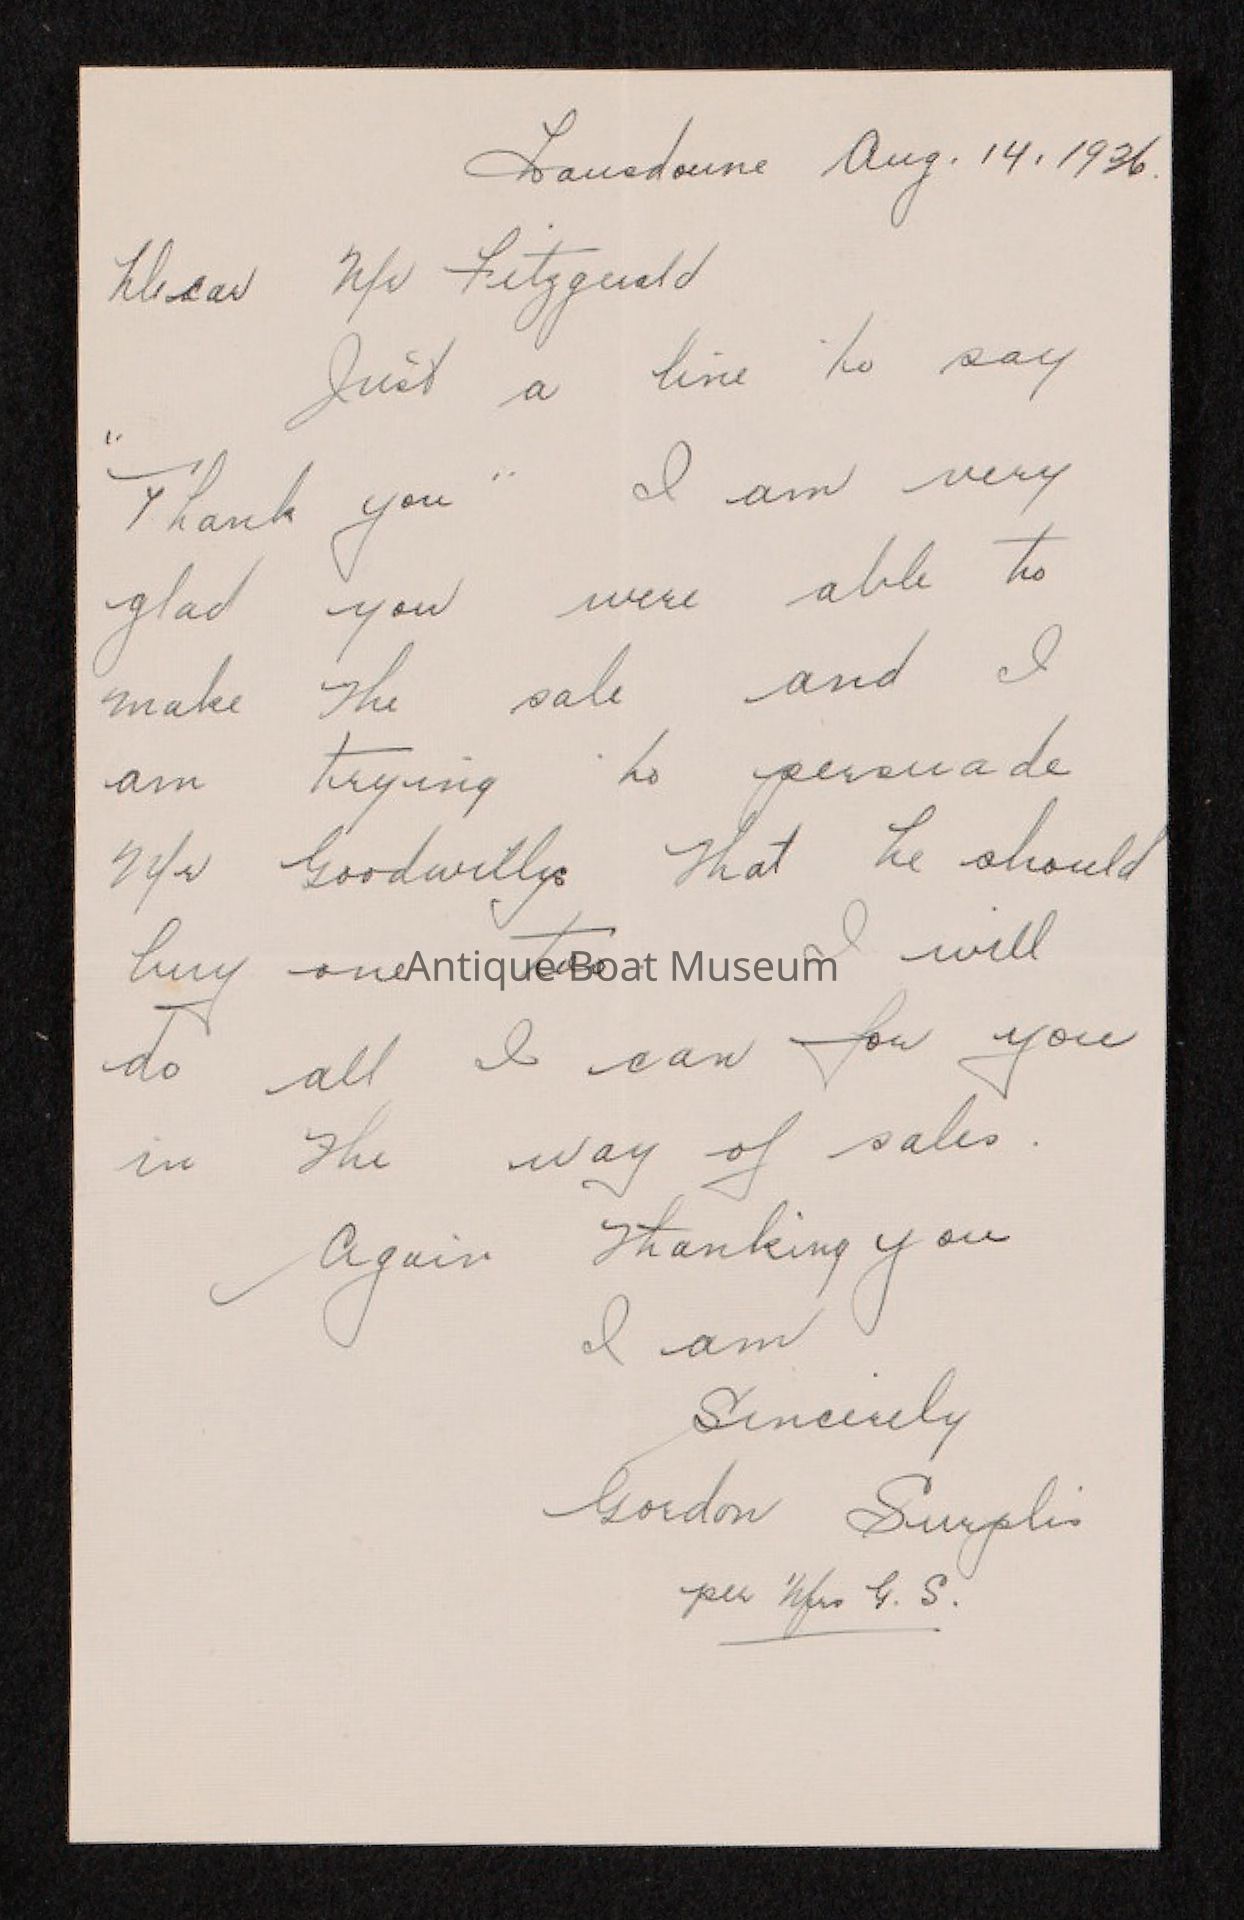 Lansdowne Aug. 14. 1936.
Dear Mr Fitzgerald
Just a line to say
"Thank you" I am very
glad you were able to
make the sale and I
am trying to persuade
Mr Goodwillys that he should
buy one too. I will
Antique Boat Museum
do all I can for you
in the way of sales.
Again thanking you
I am
Sincerely
Gordon Surplis
per Mrs G. S.